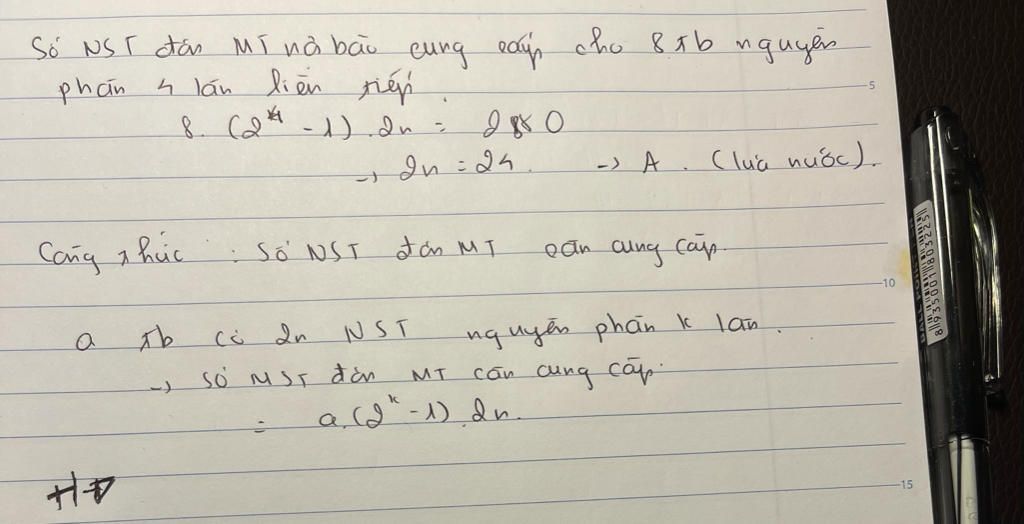 Số NST đơn MT nội bào cung cấp cho 8 tb nguyên
phân 4 lần liên tiếp.
8. (2⁴ - 1) . 2n = 2880
→ 2n = 24. → A. (lúa nước).
Công thức : Số NST đơn MT cần cung cấp.
a tb có 2n NST nguyên phân k lần.
→ Số NST đơn MT cần cung cấp.
= a.(2ᵏ - 1). 2n.
5
10
15
8935001803225